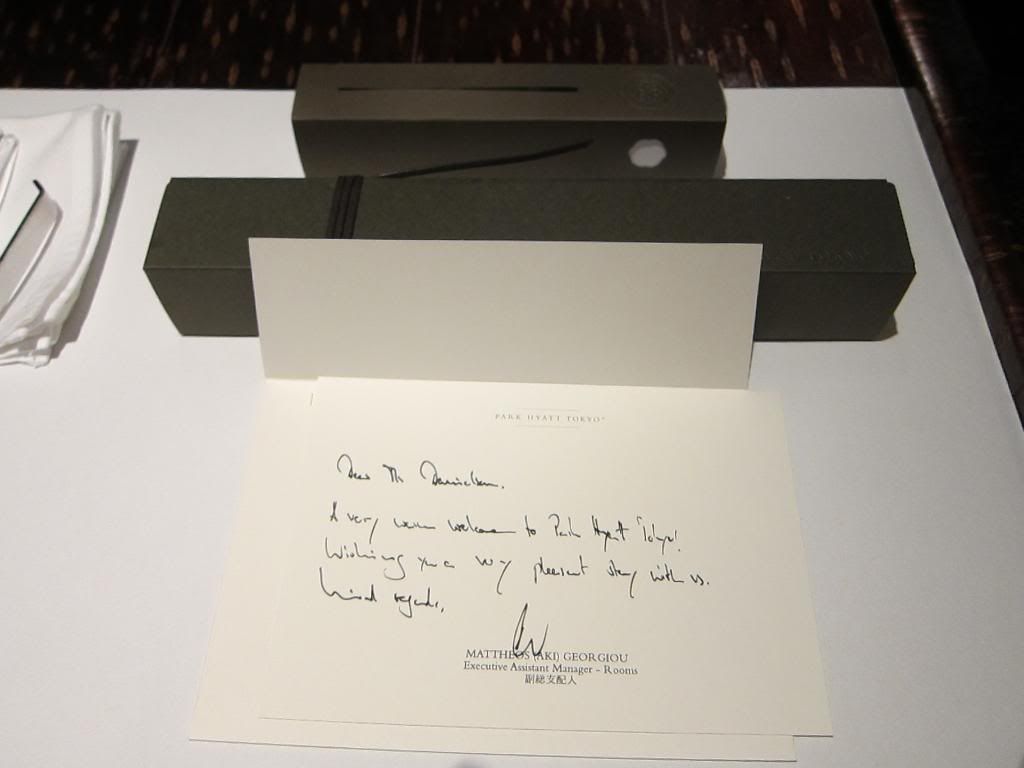 PARK HYATT TOKYO®
Dear Mr Danielsen.
A very warm welcome to Park Hyatt Tokyo!
Wishing you a very pleasant stay with us.
Kind regards,
MATTHEOS (AKI) GEORGIOU
Executive Assistant Manager – Rooms
副総支配人